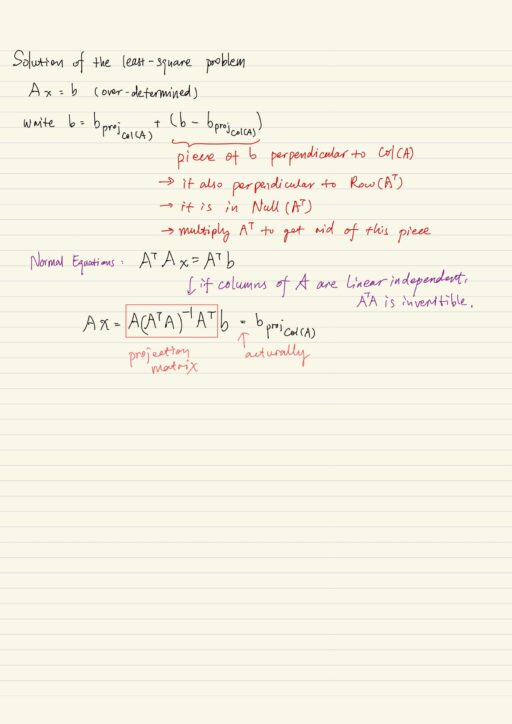 Solution of the least-square problem
Ax = b (over-determined)
write b = b proj Col(A) + (b - b proj Col(A))
piece of b perpendicular to Col(A)
→ it also perpendicular to Row(Aᵀ)
→ it is in Null(Aᵀ)
→ multiply Aᵀ to get rid of this piece
Normal Equations: AᵀAx = Aᵀb
↓ if columns of A are linear independent,
AᵀA is invertible.
Ax = A(AᵀA)⁻¹Aᵀ b = b proj Col(A)
projection matrix
↑ acturally